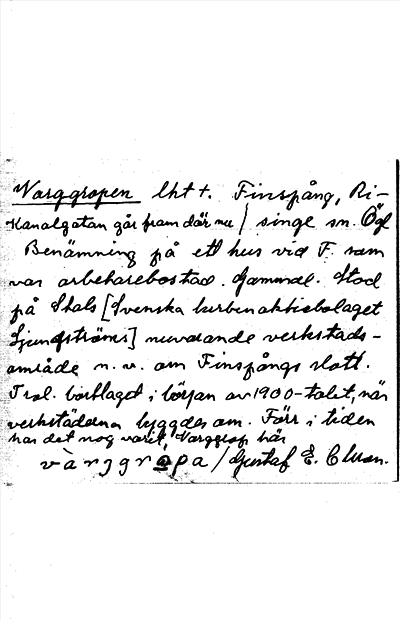 Varggropen lht +. Finspång, Ri-
Kanalgatan går fram där nu / singe sn. Ögl
Benämning på ett hus vid F. som
var arbetarebostad. Gammal. Stod
på Stals [Svenska turbinaktiebolaget
Ljungströms] nuvarande verkstads-
område n. v. om Finspångs slott.
Trol. borttaget i början av 1900-talet, när
verkstäderna byggdes om. Förr i tiden
har det nog varit Varggrop här
/ Gustaf E.